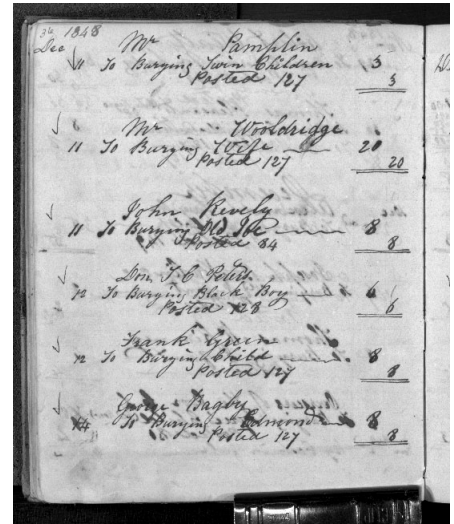 36 1848
Dec Mr Pamplin
11 To Burying Twin Children 3
Posted 127 3
Mr Wooldridge
11 To Burying Wife 20
Posted 127 20
John Revely
11 To Burying Old Joe 8
Posted 84 8
Don T C Peters
12 To Burying Black Boy 6
Posted 128 6
Frank Green
12 To Burying Child 8
Posted 127 8
George Bagby
14 To Burying Edmond 8
Posted 127 8